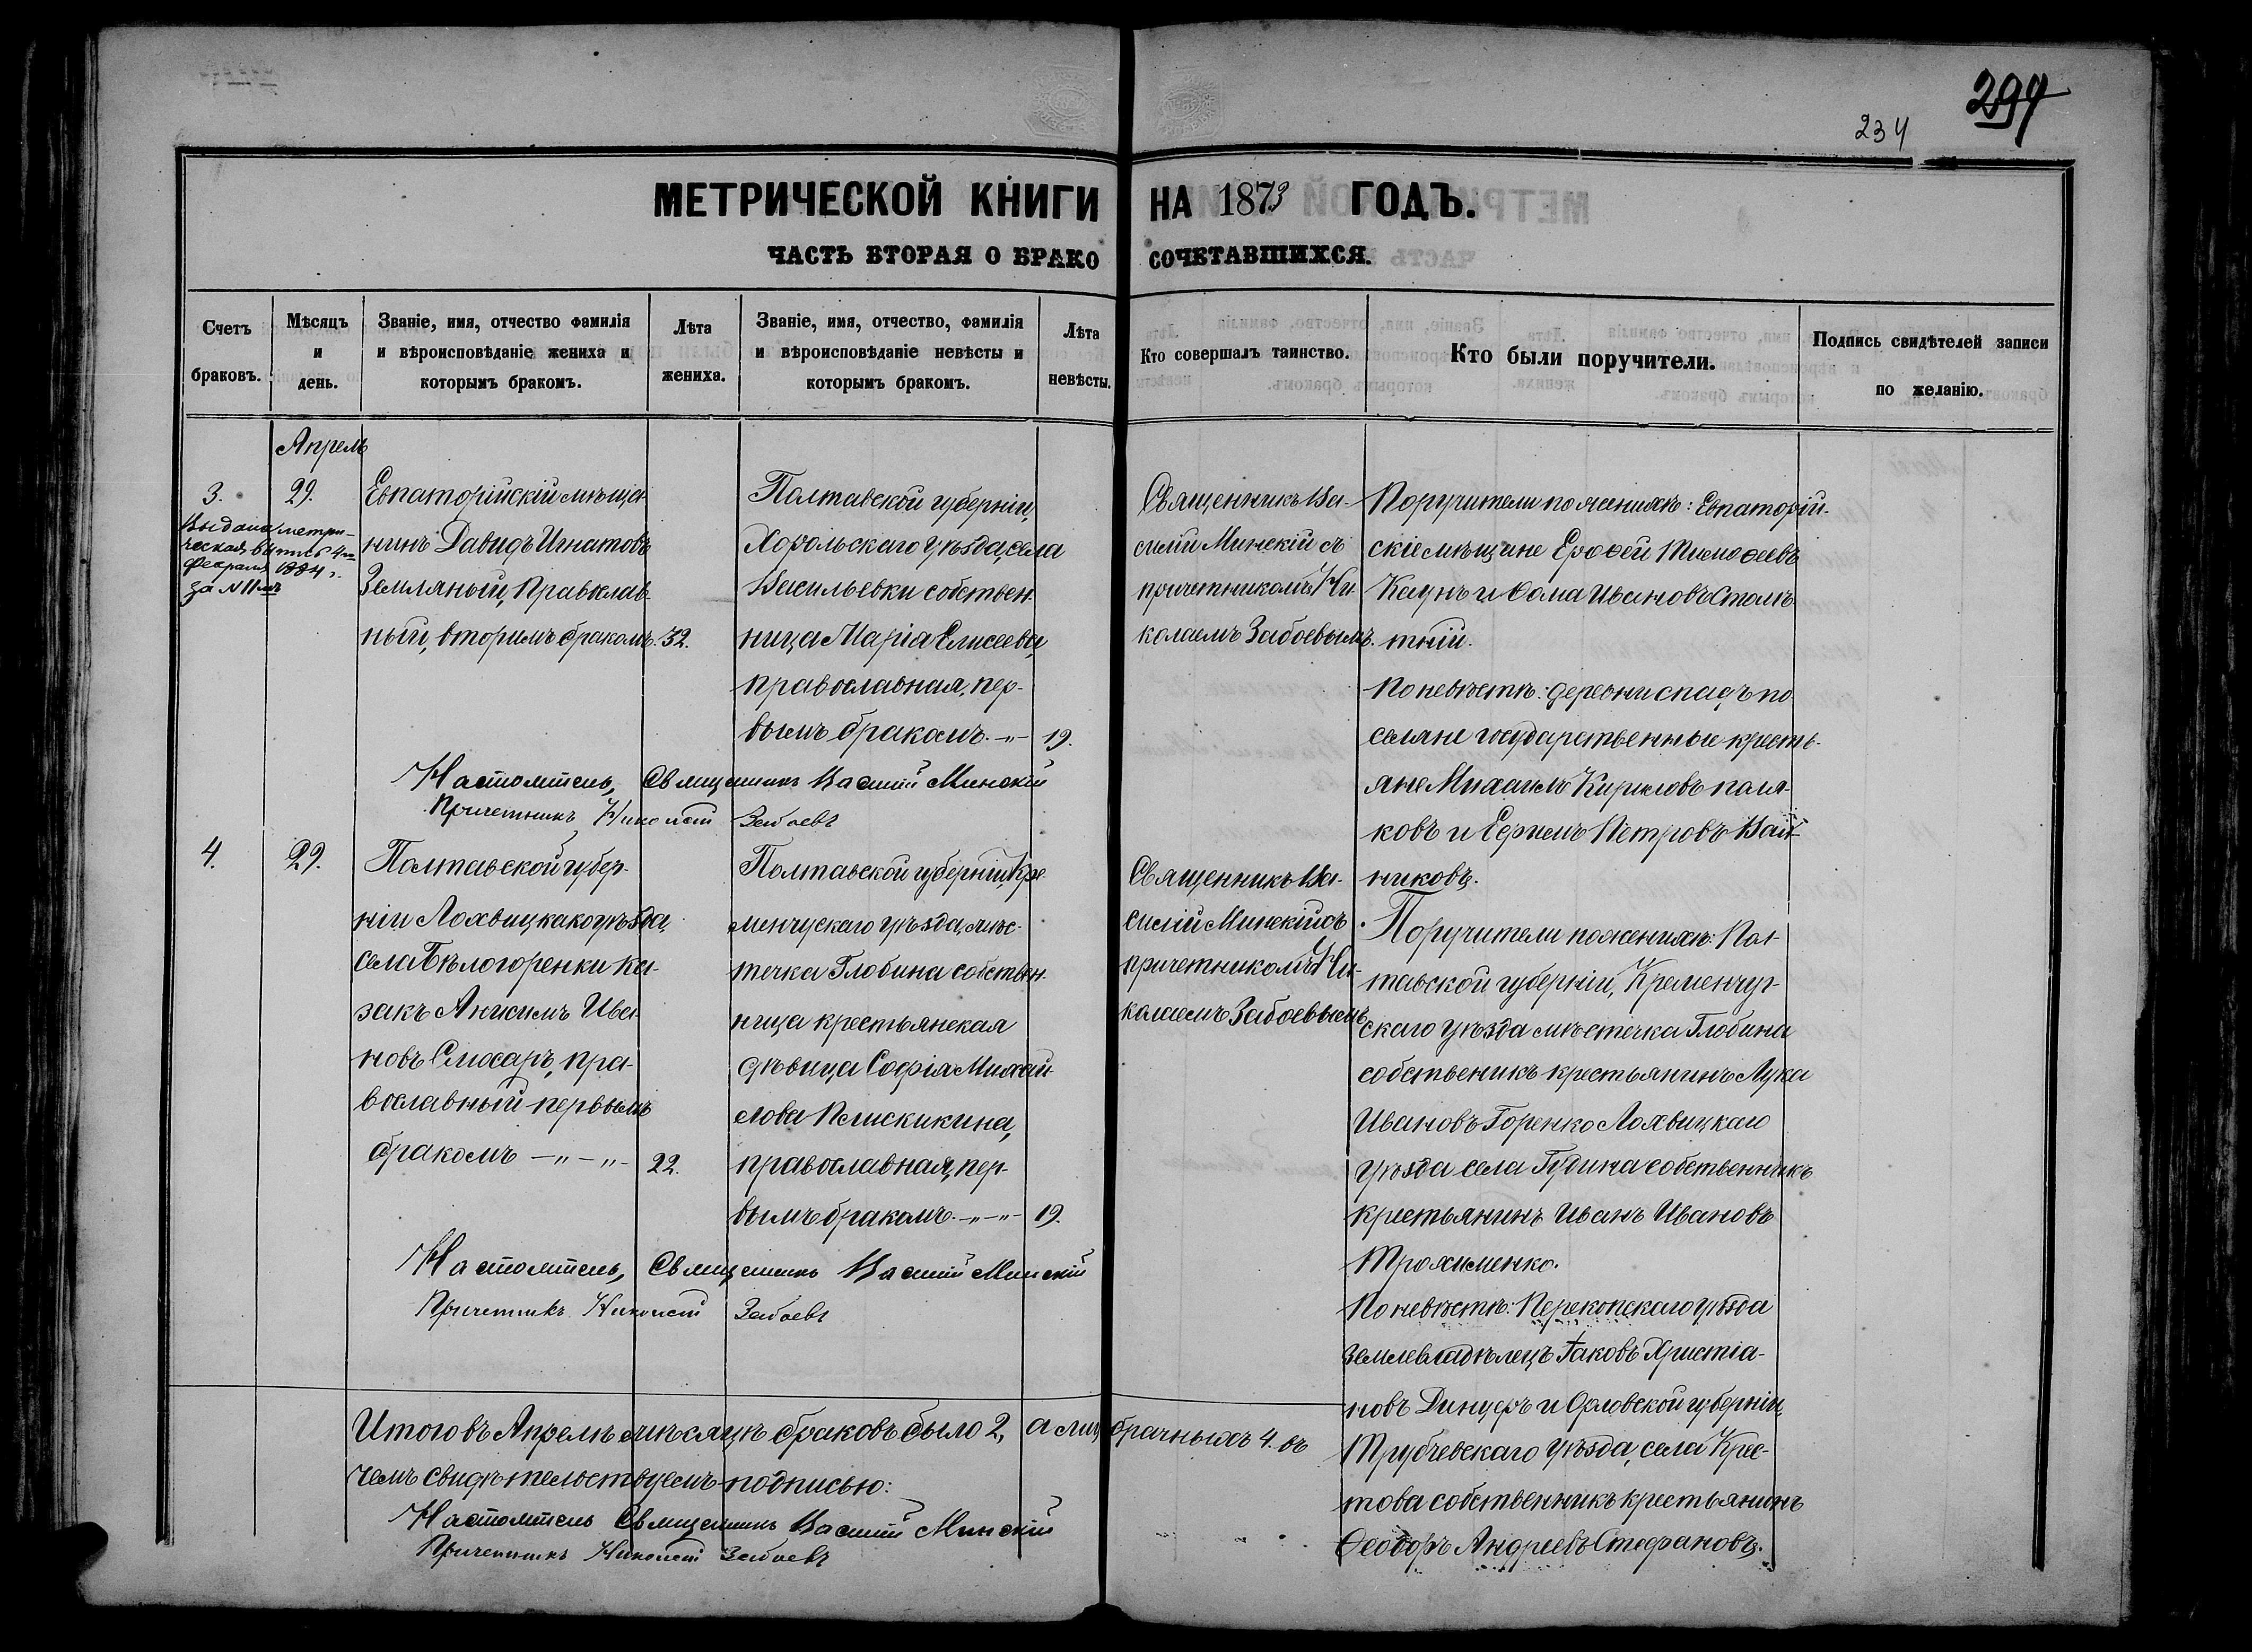 297
234
МЕТРИЧЕСКОЙ КНИГИ НА 1873 ГОДЪ.
ЧАСТЬ ВТОРАЯ О БРАКОСОЧЕТАВШИХСЯ.
Счетъ браковъ.
Мѣсяцъ и день.
Званіе, имя, отчество фамилія
и вѣроисповѣданіе жениха и
которымъ бракомъ.
Лѣта жениха.
Званіе, имя, отчество, фамилія
и вѣроисповѣданіе невѣсты и
которымъ бракомъ.
Лѣта невѣсты.
Кто совершалъ таинство.
Кто были поручители.
Подпись свидѣтелей записи
по желанію.
Апрель
3.
Выдана метри-
ческая выпись 4го
Февраля 1884 г.
за N 11мъ
29.
Евпаторійскій мѣща-
нинъ Давидъ Игнатовъ
Земляный, Православ-
ный, вторимъ бракомъ.
32.
Полтавской губерніи,
Хорольскаго уѣзда, села
Васильевки собствен-
ница Марія Елисеева,
православная, пер-
вымъ бракомъ. -„-
19.
Священникъ Ва-
силій Минскій съ
причетникомъ Ни-
колаемъ Забоевымъ.
Поручители по женихѣ: Евпаторій-
скіе мѣщане Ерофей Тимофеевъ
Каунъ и Фома Ивановъ
тній.
По невѣстѣ: деревни спадъ по
селяне государственные кресть-
яне Михаилъ Кириловъ поля-
ковъ и Ефримъ Петровъ Вой-
никовъ.
Настоятель, Священникъ Василій Минскій
Причетникъ Николай Забоевъ
4.
29.
Полтавской губер-
ніи Лохвицкаго уѣзда,
села Бѣлогоренки ка-
закъ Анисимъ Ива-
новъ Слюсаръ, пра-
вославный первымъ
бракомъ -„-„-
22.
Полтавской губерніи, Кре-
менчускаго уѣзда, мѣс-
течка Глобина собствен-
ница крестьянская
дѣвица Софія Михай-
лова Плискикина,
православная, пер-
вымъ бракомъ. -„-„-
19.
Священникъ Ва-
силій Минскій съ
причетникомъ Ни-
колаемъ Забоевымъ
Поручители по женихѣ: Пол-
тавской губерніи, Кременчуг-
скаго уѣзда мѣстечка Глобина
собственикъ крестьянинъ Лука
Ивановъ Горенко Лохвицкаго
уѣзда села Гудина собственникъ
крестьянинъ Иванъ Ивановъ
Трохименко.
По невѣстѣ: Перекопскаго уѣзда
землевладѣлецъ Іаковъ Христіа-
новъ Динцеръ и Орловской губерніи,
Трубчевскаго уѣзда, села Крес-
това собственникъ крестьянинъ
Феодоръ Андреевъ Стефановъ.
Настоятель, Священникъ Василій Минскій
Причетникъ Николай Забоевъ
Итого въ Апрелѣ мѣсяцѣ браковъ было 2, а лиц брачныхъ 4. въ
чемъ свидѣтельствуемъ подписью:
Настоятель Священникъ Василій Минскій
Причетникъ Николай Забоевъ